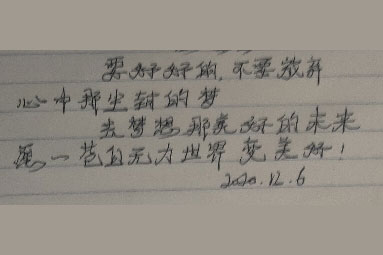 要好好的,不要放弃
心中那尘封的梦
去梦想那美好的未来
愿一苍白无力世界变美好!
2020.12.6